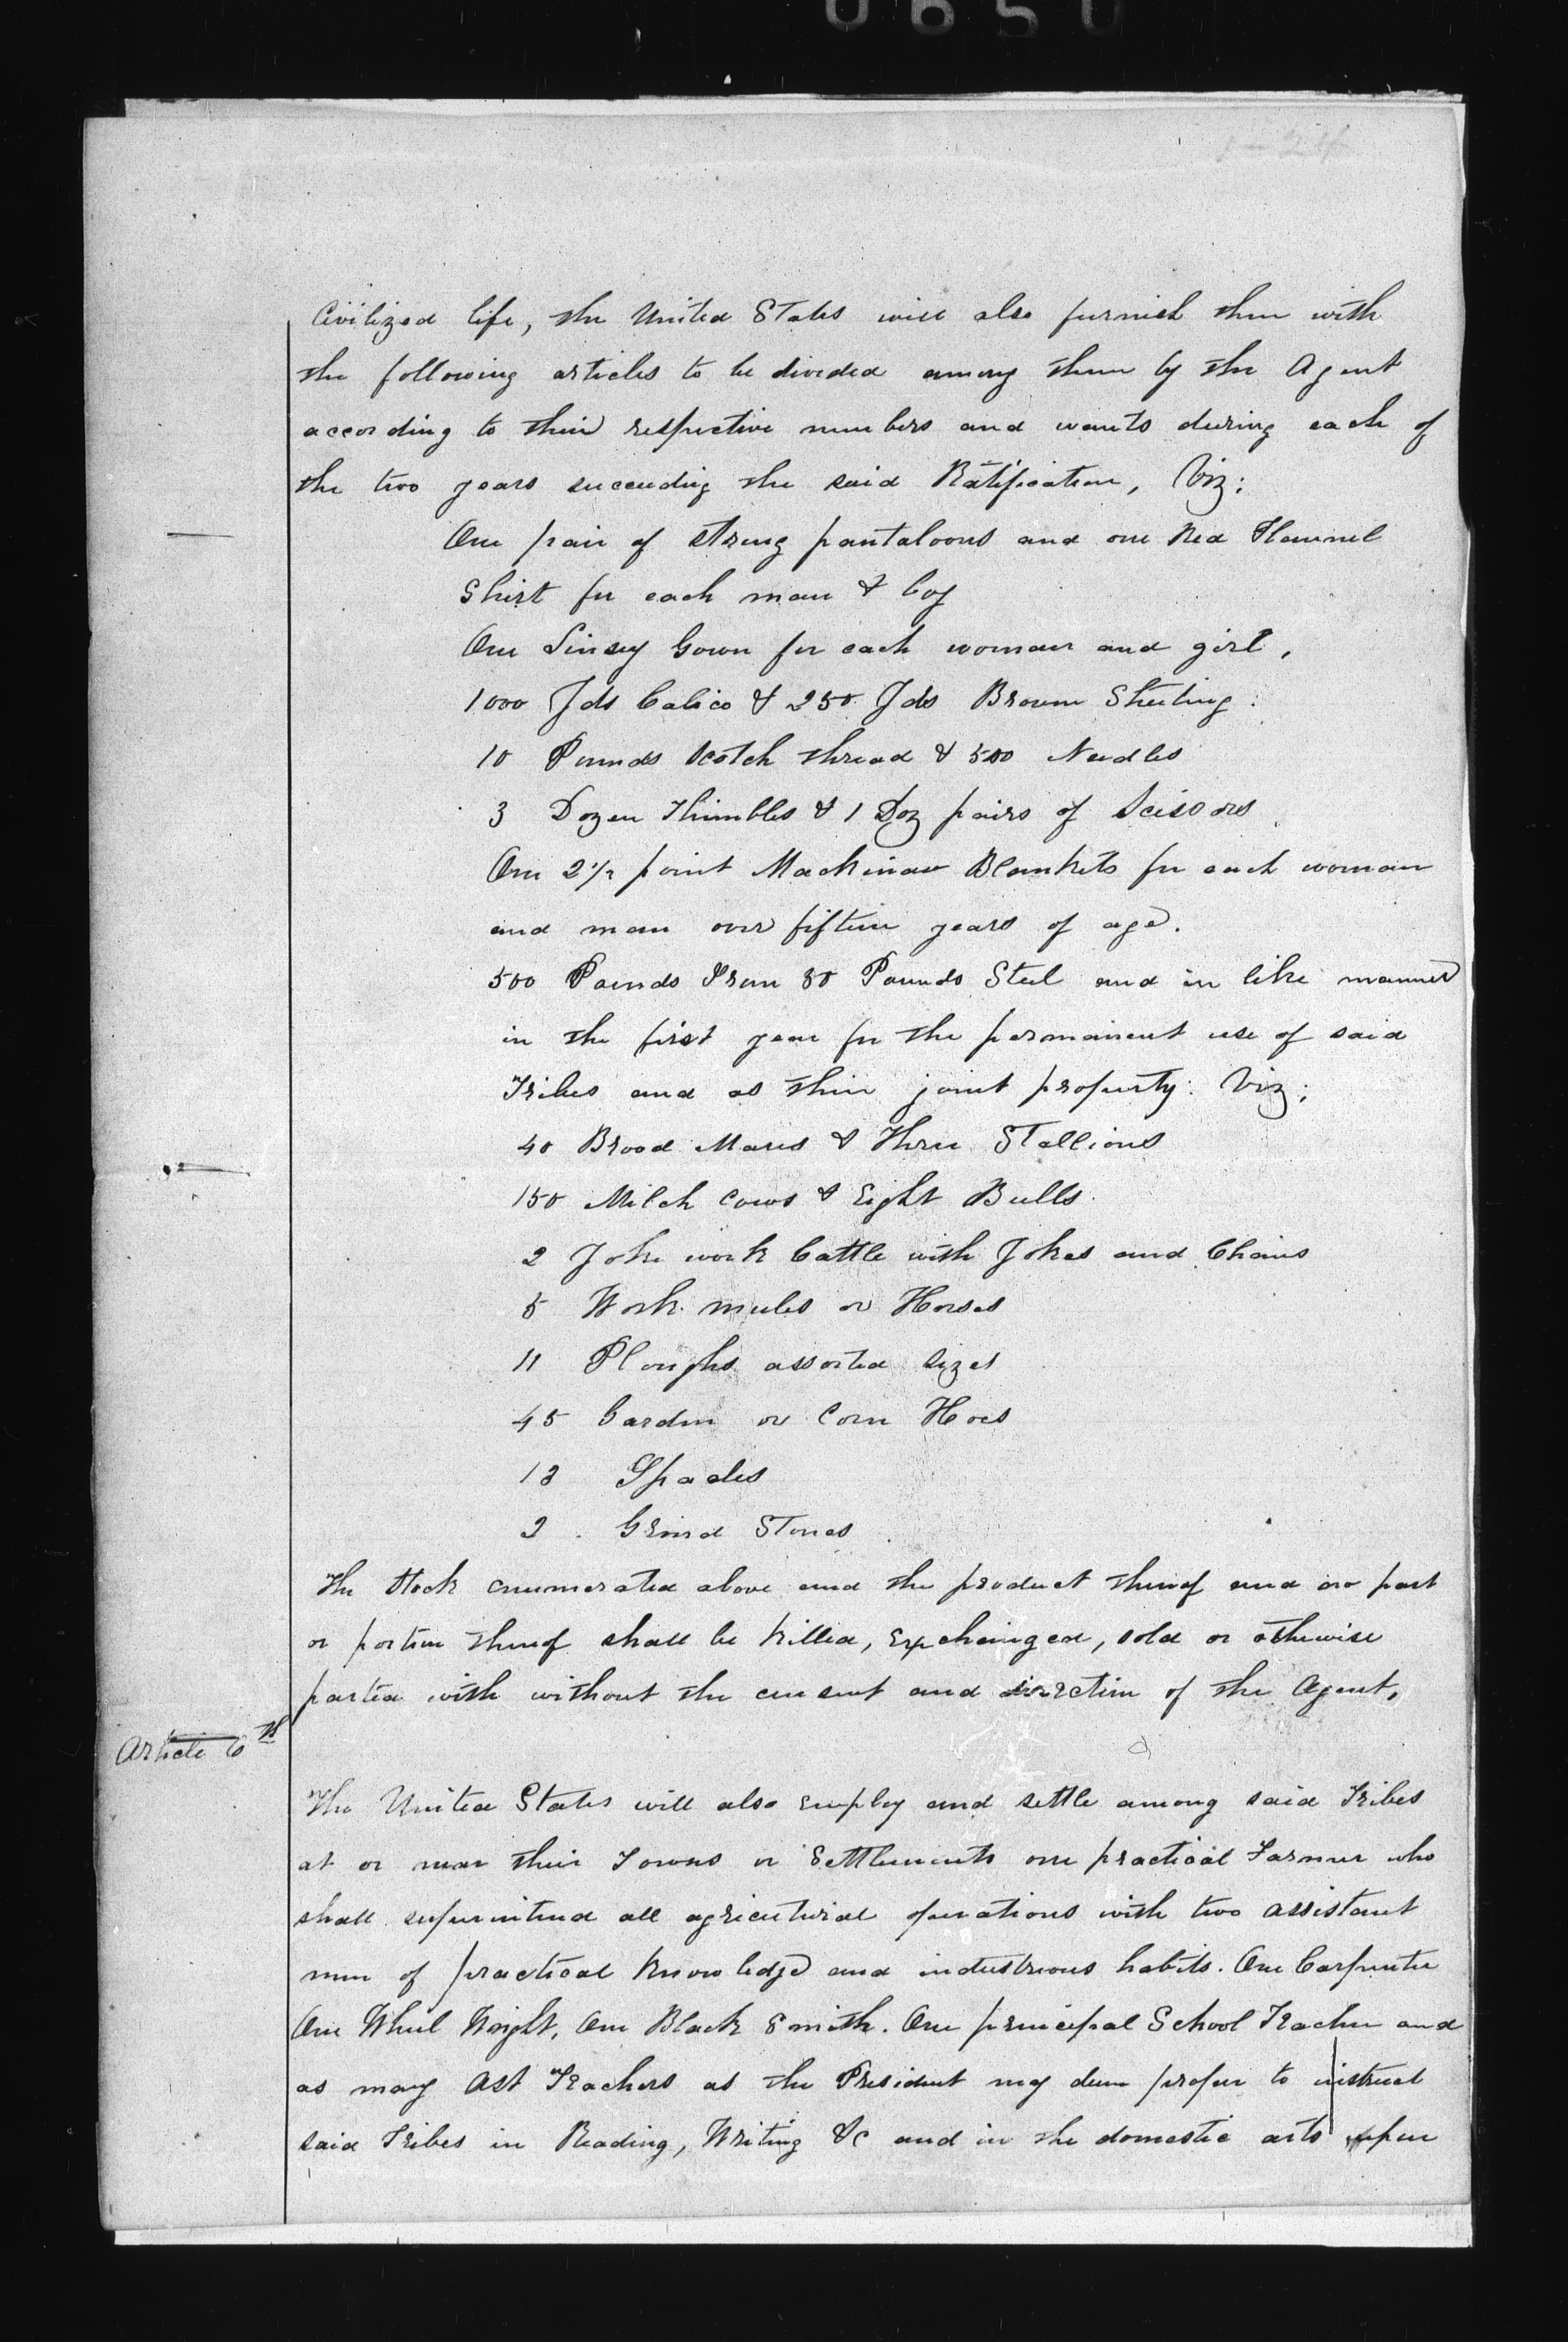 0650
Civilized life, the United States will also furnish them with
the following articles to be divided among them by the Agent
according to their respective numbers and wants during each of
the two years succeeding the said Ratification, Viz:
One pair of strong pantaloons and one Red Flannel
Shirt for each man & boy
One Linsey Gown for each woman and girl,
1000 Yds Calico & 250 Yds Brown Sheeting:
10 Pounds Scotch thread & 500 Needles
3 Dozen Thimbles & 1 Doz pairs of Scissors,
One 2½ point Mackinaw Blankets for each woman
and man over fifteen years of age.
500 Pounds Iron 80 Pounds Steel and in like manner
in the first year for the permanent use of said
Tribes and as their joint property: Viz;
40 Brood Mares & Three Stallions
150 Milch Cows & Eight Bulls.
2 Yoke work Cattle with Yokes and Chains
5 Work mules or Horses
11 Ploughs assorted sizes
45 Garden or Corn Hoes
13 Spades
2 Grind Stones
The Stock enumerated above and the product thereof and no part
or portion thereof shall be killed, Exchanged, sold or otherwise
parted with without the consent and direction of the Agent,
Article 6th
The United States will also Employ and settle among said Tribes
at or near their Towns or Settlements one practical Farmer who
shall superintend all agricultural operations with two assistant
men of practical Knowledge and industrious habits. One Carpenter
One Wheel Wright, One Black Smith. One principal School Teacher and
as many Ast Teachers as the President may deem proper to instruct
said Tribes in Reading, Writing &c and in the domestic arts upon